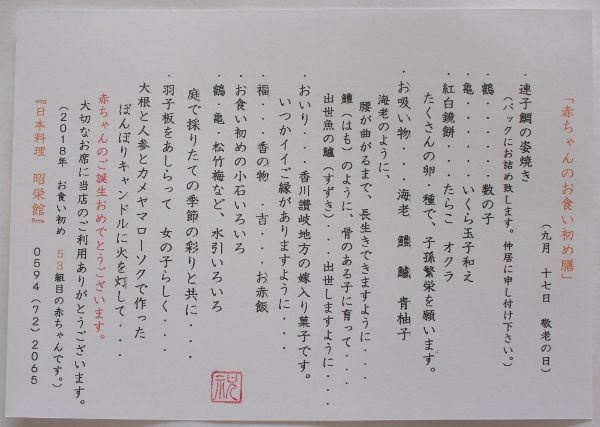 「赤ちゃんのお食い初め膳」
（九月 十七日 敬老の日）
・連子鯛の姿焼き
（パックにお詰め致します。仲居に申し付け下さい。）
・鶴・・・・・・数の子
・亀・・・・・・いくら玉子和え
・紅白鏡餅・・・たらこ オクラ
たくさんの卵・種で、子孫繁栄を願います。
・お吸い物・・・海老 鱧 鱸 青柚子
海老のように、
腰が曲がるまで、長生きできますように・・・
鱧（はも）のように、骨のある子に育って・・・
出世魚の鱸（すずき）・・・出世しますように・・・
・おいり・・・香川讃岐地方の嫁入り菓子です。
いつかイイご縁がありますように・・・
・福・・・香の物 ・吉・・・お赤飯
・お食い初めの小石いろいろ
・鶴・亀・松竹梅など、水引いろいろ
庭で採りたての季節の彩りと共に・・・
・羽子板をあしらって 女の子らしく・・・
大根と人参とカメヤマローソクで作った
ぼんぼりキャンドルに火を灯して・・・
赤ちゃんのご誕生おめでとうございます。
大切なお席に当店のご利用ありがとうございます。
（２０１８年 お食い初め ５３組目の赤ちゃんです。）
『日本料理 昭栄館』 ０５９４（７２）２０６５
祝